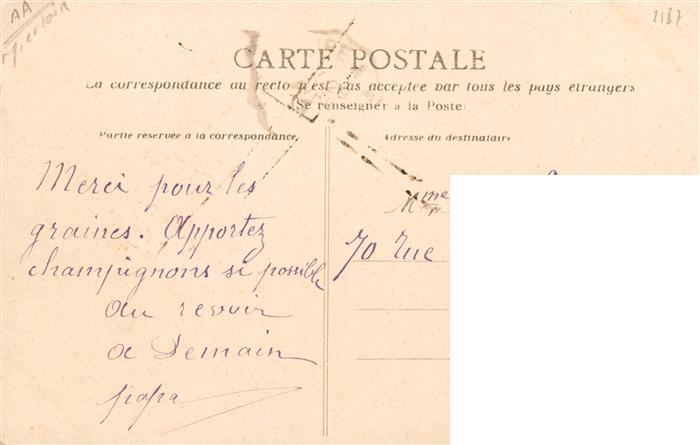 AA
2187
CARTE POSTALE
La correspondance au recto n'est pas acceptée par tous les pays étrangers
(Se renseigner à la Poste)
Partie réservée à la correspondance
Adresse du destinataire
Merci pour les
graines. Apportez
champignons si possible
au revoir
a Demain
papa
Mme
70 rue